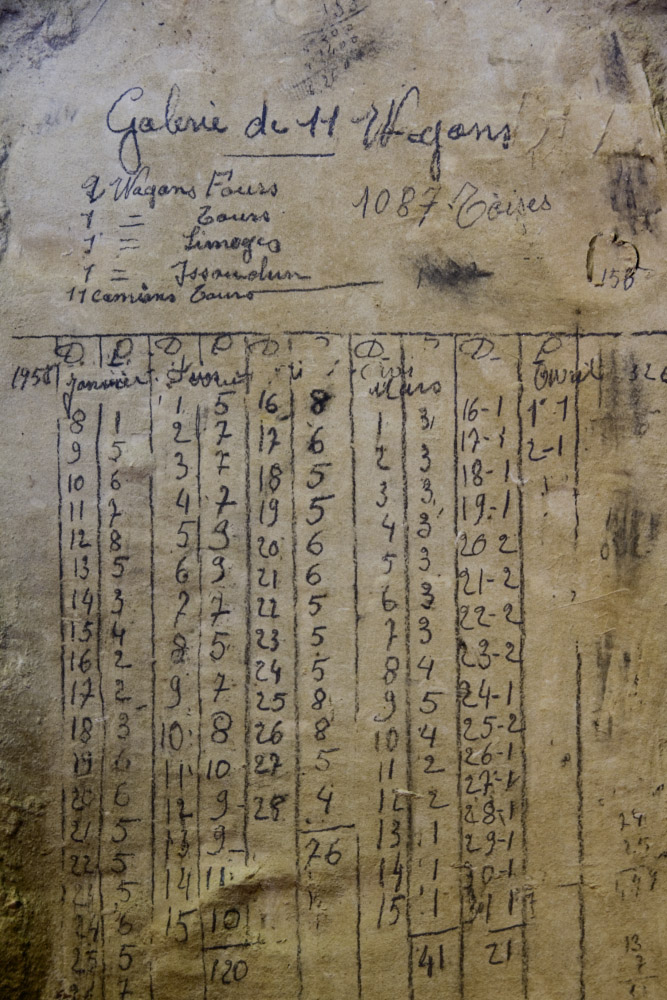 Galerie de 11 Wagons
2 Wagons Fours
1 = Tours
1 = Limoges
1 = Issoudun
11 camions Tours
1087 Toises
158
D. P. D. P. D D. D.
1958 Janvier Mars Avril 326
8 1 1 5 16 8 1 3 16-1 1-1
9 5 2 7 17 6 2 3 17-1 2-1
10 6 3 7 18 5 3 3 18-1
11 7 4 7 19 5 4 3 19-1
12 8 5 9 20 6 5 3 20 2
13 5 6 9 21 6 6 3 21-2
14 3 7 7 22 5 7 3 22-2
15 4 8 5 23 5 8 4 23-2
16 2 9 7 24 5 9 5 24-1
17 2 10 8 25 8 10 4 25-2
18 3 11 10 26 8 11 2 26-1
19 6 12 9 27 5 12 2 27-1
20 6 13 9 28 4 13 1 28-1
21 5 14 11 76 14 1 29-1
22 5 15 10 15 1 30-1
23 5 120 41 31 1
24 6 21
25 5
26 7
13
7